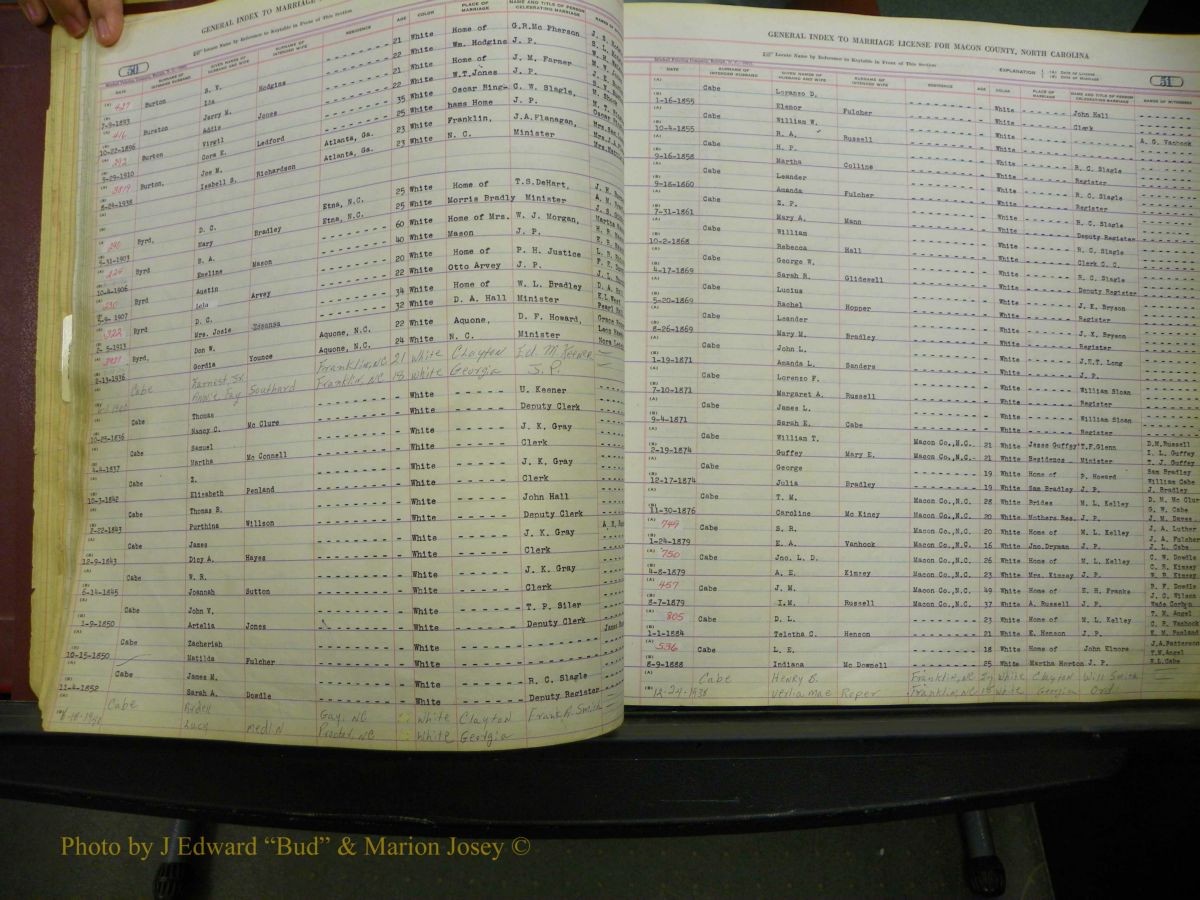 50
GENERAL INDEX TO MARRIAGE
Locate Name by Reference to Keytable in Front of This Section
DATE SURNAME OF INTENDED HUSBAND GIVEN NAMES OF HUSBAND AND WIFE SURNAME OF INTENDED WIFE RESIDENCE AGE COLOR PLACE OF MARRIAGE NAME AND TITLE OF PERSON CELEBRATING MARRIAGE
427 Burton S. V. 21 White Home of G.R.Mc Pherson
7-9-1893 Lia Hodgins 22 White Wm. Hodgins J. P.
416 Burston Jerry M. 21 White Home of J. M. Farner
10-22-1896 Addie Jones 22 White W.T.Jones J. P.
392 Burton Virgil 35 White Oscar Bing- C. W. Slagle,
9-29-1910 Cora E. Ledford 25 White hams Home J. P.
3819 Burton, Joe M. Atlanta, Ga. 23 White Franklin, J.A.Flanagan,
8-24-1938 Isabell S. Richardson Atlanta, Ga. 23 White N. C. Minister
240 Byrd, D. C. Etna, N.C. 25 White Home of T.S.DeHart,
5-31-1903 Mary Bradley Etna, N.C. 25 White Morris Bradly Minister
Byrd S. A. 60 White Home of Mrs. W. J. Morgan,
10-4-1906 Emeline Mason 40 White Mason J. P.
230 Byrd Austin 20 White Home of P. H. Justice
5-9- 1907 Lela Arvey 22 White Otto Arvey J. P.
322 Byrd D. C. 34 White Home of W. L. Bradley
5-5-1913 Mrs. Josie 32 White D. A. Hall Minister
Byrd, Don W. Aquone, N.C. 22 White Aquone, D. F. Howard,
2-13-1936 Gordia Younce Aquone, N.C. 24 White N. C. Minister
Cabe Earnest, Sr. Franklin, NC 21 White Clayton Ed. M Keener
Annie Fay Southard Franklin, NC 18 White Georgia J. P.
Cabe Thomas White U. Keener
10-25-1836 Nancy C. Mc Clure White Deputy Clerk
Cabe Samuel White J. K. Gray
4-4-1837 Martha Mc Connell White Clerk
Cabe Z. White J. K. Gray
10-3-1842 Elizabeth Penland White Clerk
Cabe Thomas B. White John Hall
2-22-1843 Purthina Willson White Deputy Clerk
Cabe James White J. K. Gray
12-9-1843 Dicy A. Hayes White Clerk
Cabe W. R. White J. K. Gray
6-14-1845 Joannah Sutton White Clerk
Cabe John V. White T. P. Siler
1-9-1850 Artelia Jones White Deputy Clerk
Cabe Zachariah White
10-15-1850 Matilda Fulcher White
Cabe James M. White R. C. Slagle
11-4-1852 Sarah A. Dowdle White Deputy Register
Cabe Gay, NC White Clayton Frank R. Smith
Lucy Medlin Proctor, NC White Georgia
51
GENERAL INDEX TO MARRIAGE LICENSE FOR MACON COUNTY, NORTH CAROLINA
Locate Name by Reference to Keytable in Front of This Section
EXPLANATION (A) DATE OF LICENSE (B) DATE OF MARRIAGE
DATE SURNAME OF INTENDED HUSBAND GIVEN NAMES OF HUSBAND AND WIFE SURNAME OF INTENDED WIFE RESIDENCE AGE COLOR PLACE OF MARRIAGE NAME AND TITLE OF PERSON CELEBRATING MARRIAGE NAMES OF WITNESSES
Cabe Loranzo D. White John Hall
1-16-1855 Elenor Fulcher White Clerk
Cabe William W. White A. G. Vanhook
10-4-1855 R. A. Russell White
Cabe H. P. White R. C. Slagle
9-16-1858 Martha Colline White Register
Cabe Leander White R. C. Slagle
9-18-1860 Amanda Fulcher White Register
Cabe Z. P. White R. C. Slagle
7-31-1861 Mary A. Mann White Deputy Register
Cabe William White R. C. Slagle
10-2-1868 Rebecca Hall White Clerk C. C.
Cabe George W. White R. C. Slagle
4-17-1869 Sarah R. Glidewell White Deputy Register
Cabe Lucius White J. K. Bryson
5-20-1869 Rachel Hopper White Register
Cabe Leander White J. K. Bryson
8-26-1869 Mary M. Bradley White Register
Cabe John L. White J.E.T. Long
1-19-1871 Amanda L. Sanders White J. P.
Cabe Lorenzo F. White William Sloan
7-10-1871 Margaret A. Russell White Register
Cabe James L. White William Sloan
9-4-1871 Sarah E. Cabe White Register
Cabe William T. Macon Co.,N.C. 21 White Jesse Guffey T.F.Glenn D.M.Russell
2-19-1874 Guffey Mary E. Macon Co.,N.C. 21 White Residence Minister I. L. Guffey T. J. Guffey
Cabe George 19 White Home of P. Howard Sam Bradley
12-17-1874 Julia Bradley 19 White Sam Bradley J. P. William Cabe J. Bradley
Cabe T. M. Macon Co.,N.C. 28 White Brides M. L. Kelley D. M. Mc Clure
11-30-1876 Caroline Mc Kiney Macon Co.,N.C. 20 White Mothers Res. J. P. G. W. Cabe J. M. Daves
749 Cabe S. R. Macon Co.,N.C. 20 White Home of M. L. Kelley J. A. Luther J. A. Fulcher
1-24-1879 E. A. Vanhook Macon Co.,N.C. 16 White Jno.Dryman J. P. J. L. Cabe
750 Cabe Jno. L. D. Macon Co.,N.C. 26 White Home of M. L. Kelley C. W. Dowdle
4-8-1879 A. E. Kimsey Macon Co.,N.C. 23 White Mrs. Kimsey J. P. C. R. Kimsey W. R. Kimsey
457 Cabe J. M. Macon Co.,N.C. 49 White Home of E. H. Franks B. F. Dowdle
8-7-1879 I.M. Russell Macon Co.,N.C. 37 White A. Russell J. P. J. C. Wilson Wade Corbin
805 Cabe D. L. 23 White Home of M. L. Kelley T. M. Angel
1-1-1884 Teletha C. Henson 21 White E. Henson J. P. C. P. Vanhook E. M. Penland
536 Cabe L. E. 18 White Home of John Elmore J.A.Patterson
8-9-1888 Indiana Mc Downell 25 White Martha Horton J. P. T.M.Angel R.L.Cabe
Cabe Henry G. Franklin, NC White Clayton Will Smith
12-24-1938 Verlia Mae Roper Franklin, NC 18 White Georgia Ord
Photo by J Edward “Bud” & Marion Josey ©